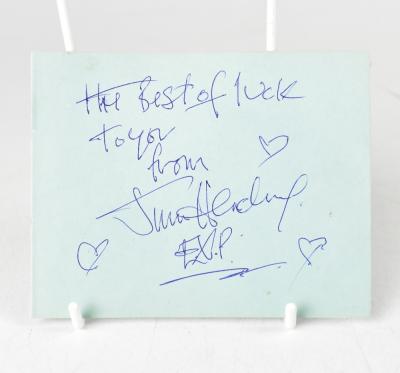 The Best of luck
to you
from
Jimi Hendrix.
EXP.